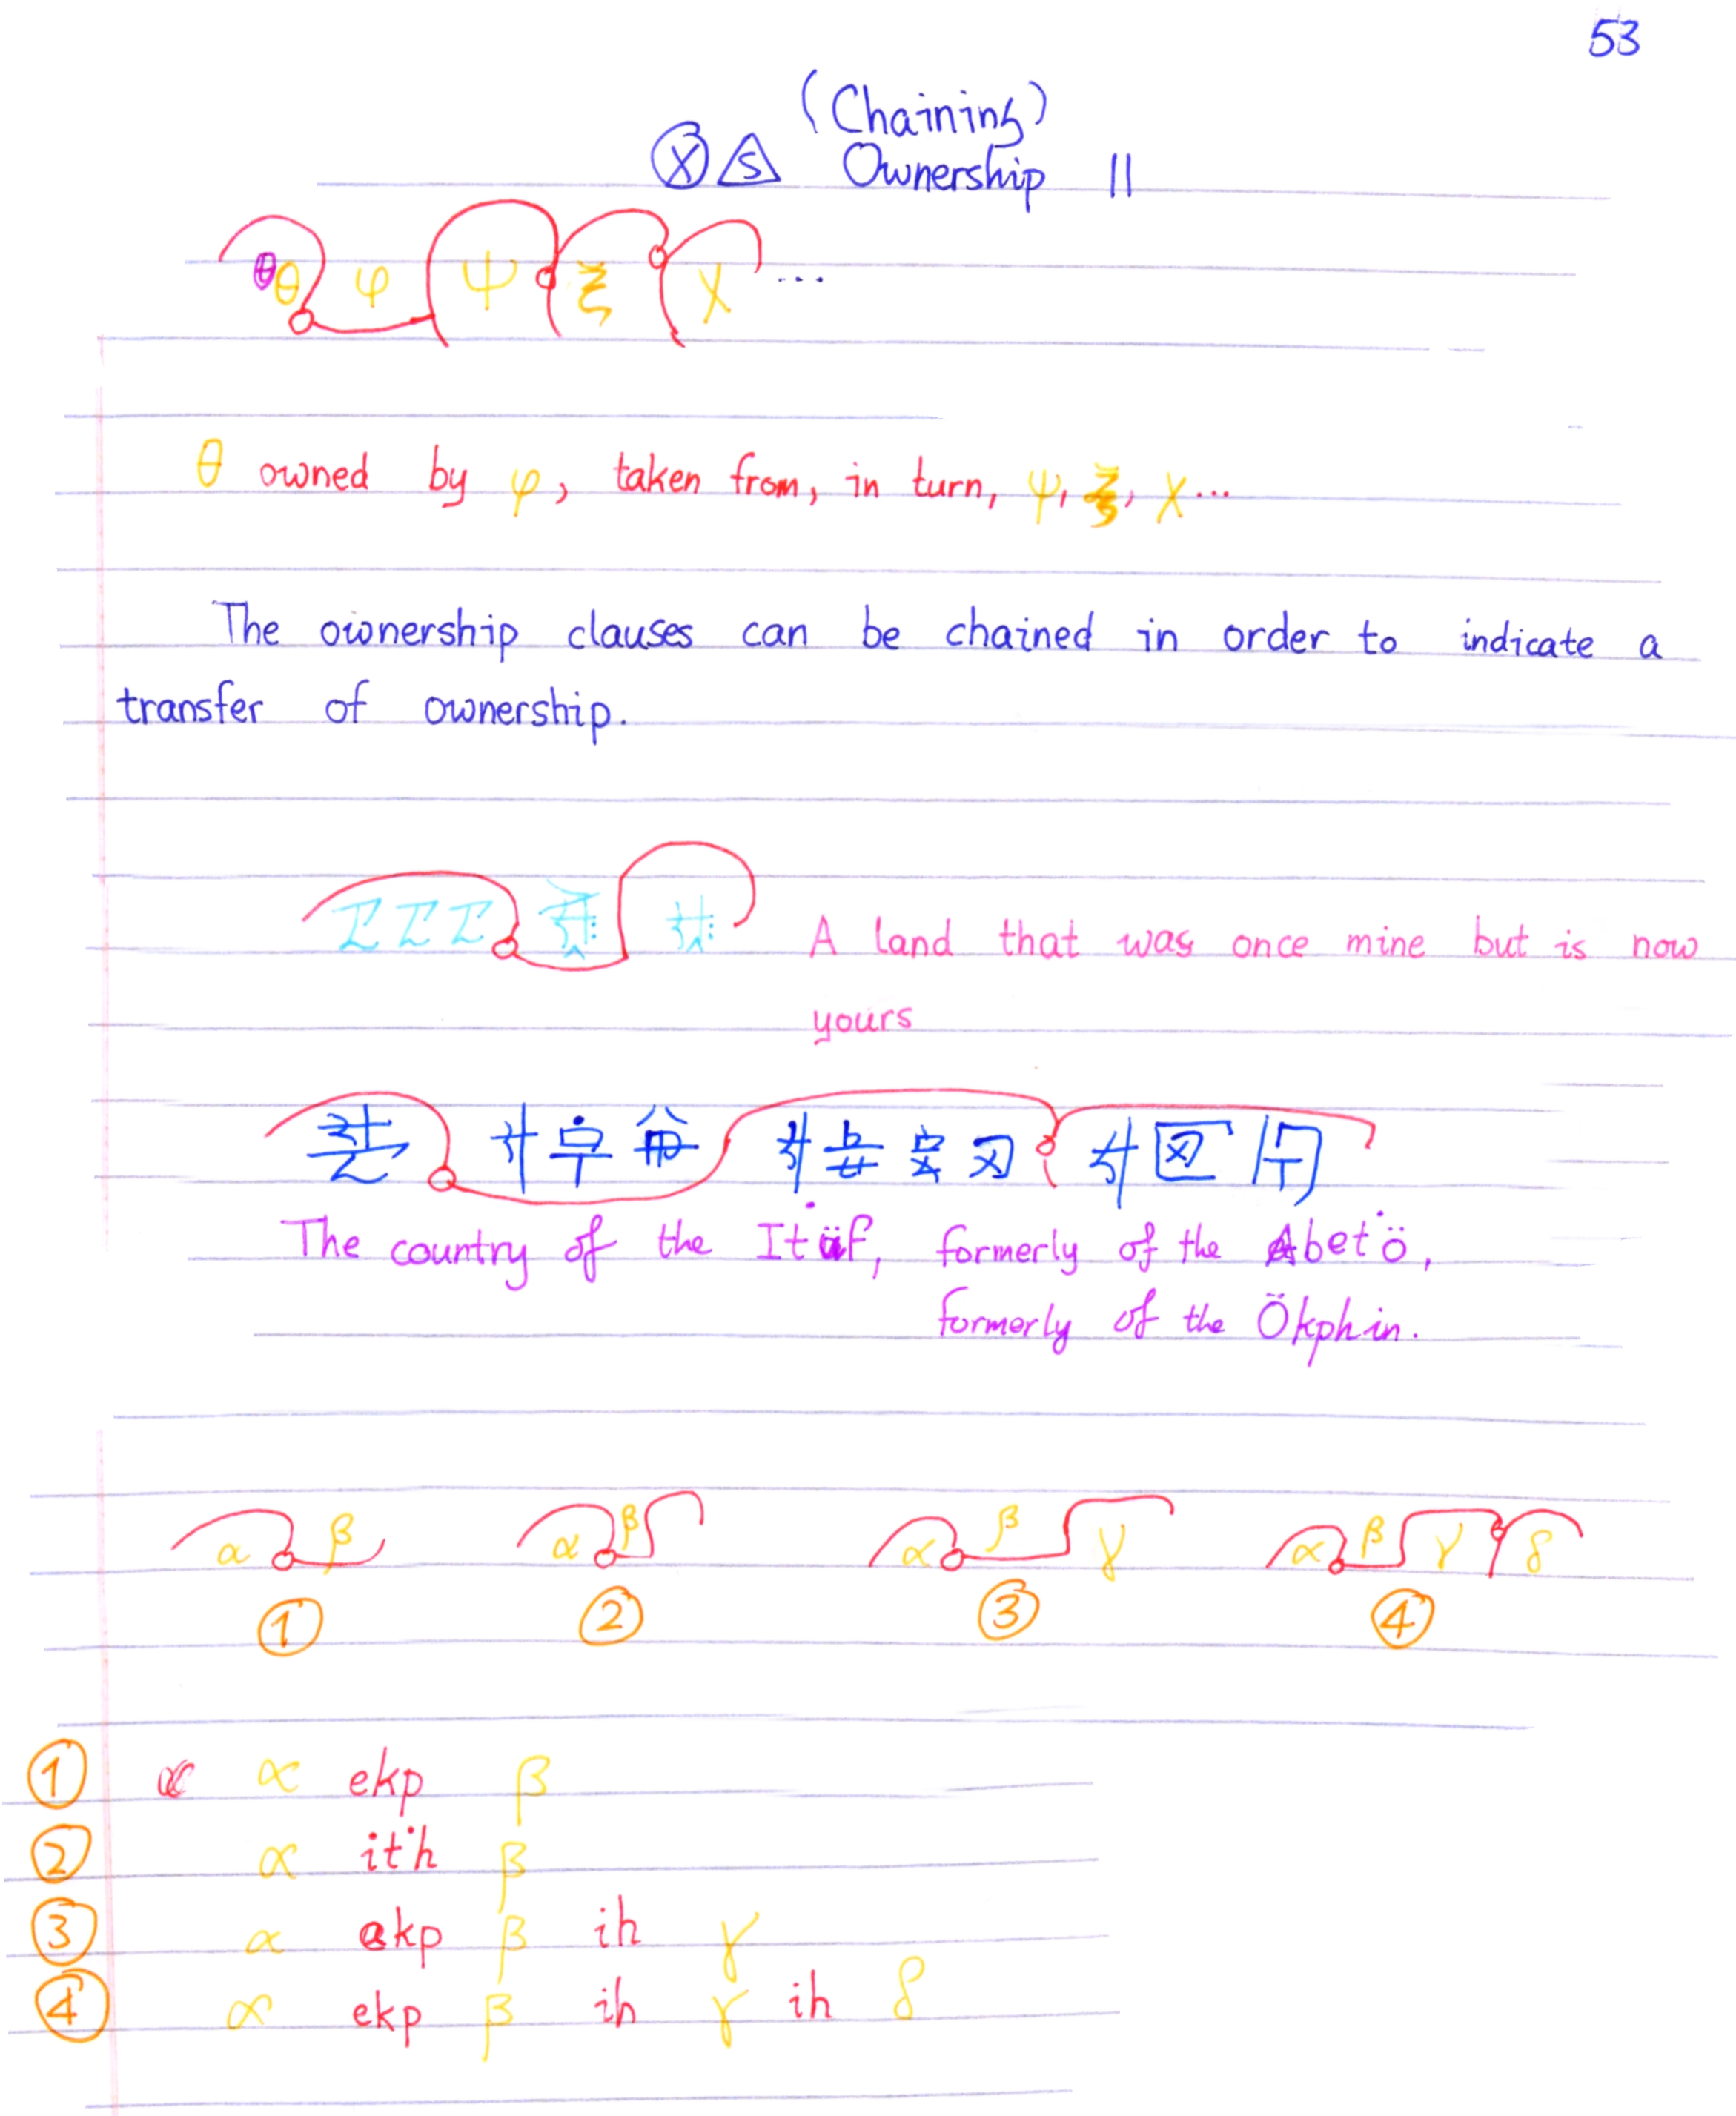 53
(Chaining)
X S Ownership II
θ θ φ ψ ξ χ ...
θ owned by φ, taken from, in turn, ψ, ξ, χ...
The ownership clauses can be chained in order to indicate a
transfer of ownership.
A land that was once mine but is now
yours
The country of the
formerly of the
formerly of the Ökphin.
α β α β α β γ α β γ δ
① ② ③ ④
① α ekp β
② α ith β
③ α ekp β ih γ
④ α ekp β ih γ ih δ